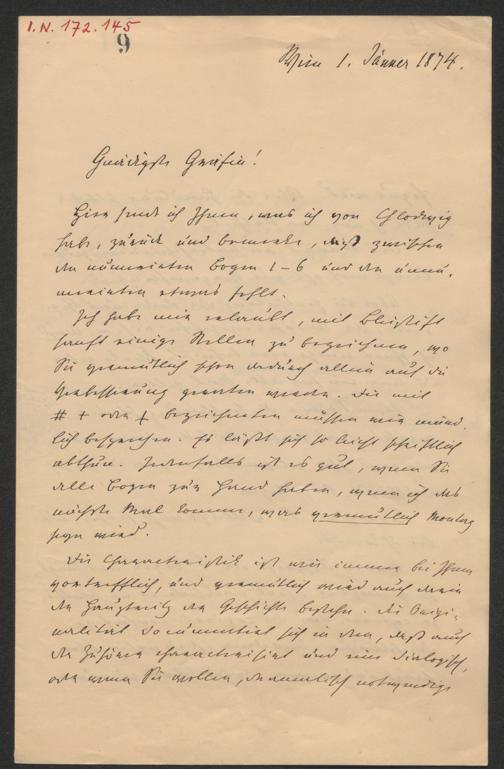 I.N. 172.145
9
Wien 1. Jänner 1874.
Gnädigste Gräfin!
Hier sende ich Ihnen, was ich von Chlodwig
habe, zurück und bemerke, daß zwischen
den numerirten Bogen 1–6 und den unnu-
merirten etwas fehlt.
Ich habe mir erlaubt, mit Bleistift
sanft einige Stellen zu bezeichnen, wo
Sie vermutlich schon dadurch allein auf die
Verbesserung geraten werden. Die mit
# + oder ⨍ bezeichneten müssen wir münd-
lich besprechen. Es läßt sich so leicht schriftlich
abthun. Jedenfalls ist es gut, wenn Sie
alle Bogen zur Hand haben, wenn ich das
nächste Mal komme, was vermutlich Montag
seyn wird.
Die Charakteristik ist wie immer bei Ihnen
vortrefflich, und vermutlich wird auch darin
der Hauptreiz der Geschichte bestehen. Die Origi-
nalität documentirt sich in dem, daß auch
der Zuhörer charakterisirt und eine dialogisch,
oder wenn Sie wollen, dramatisch notwendige